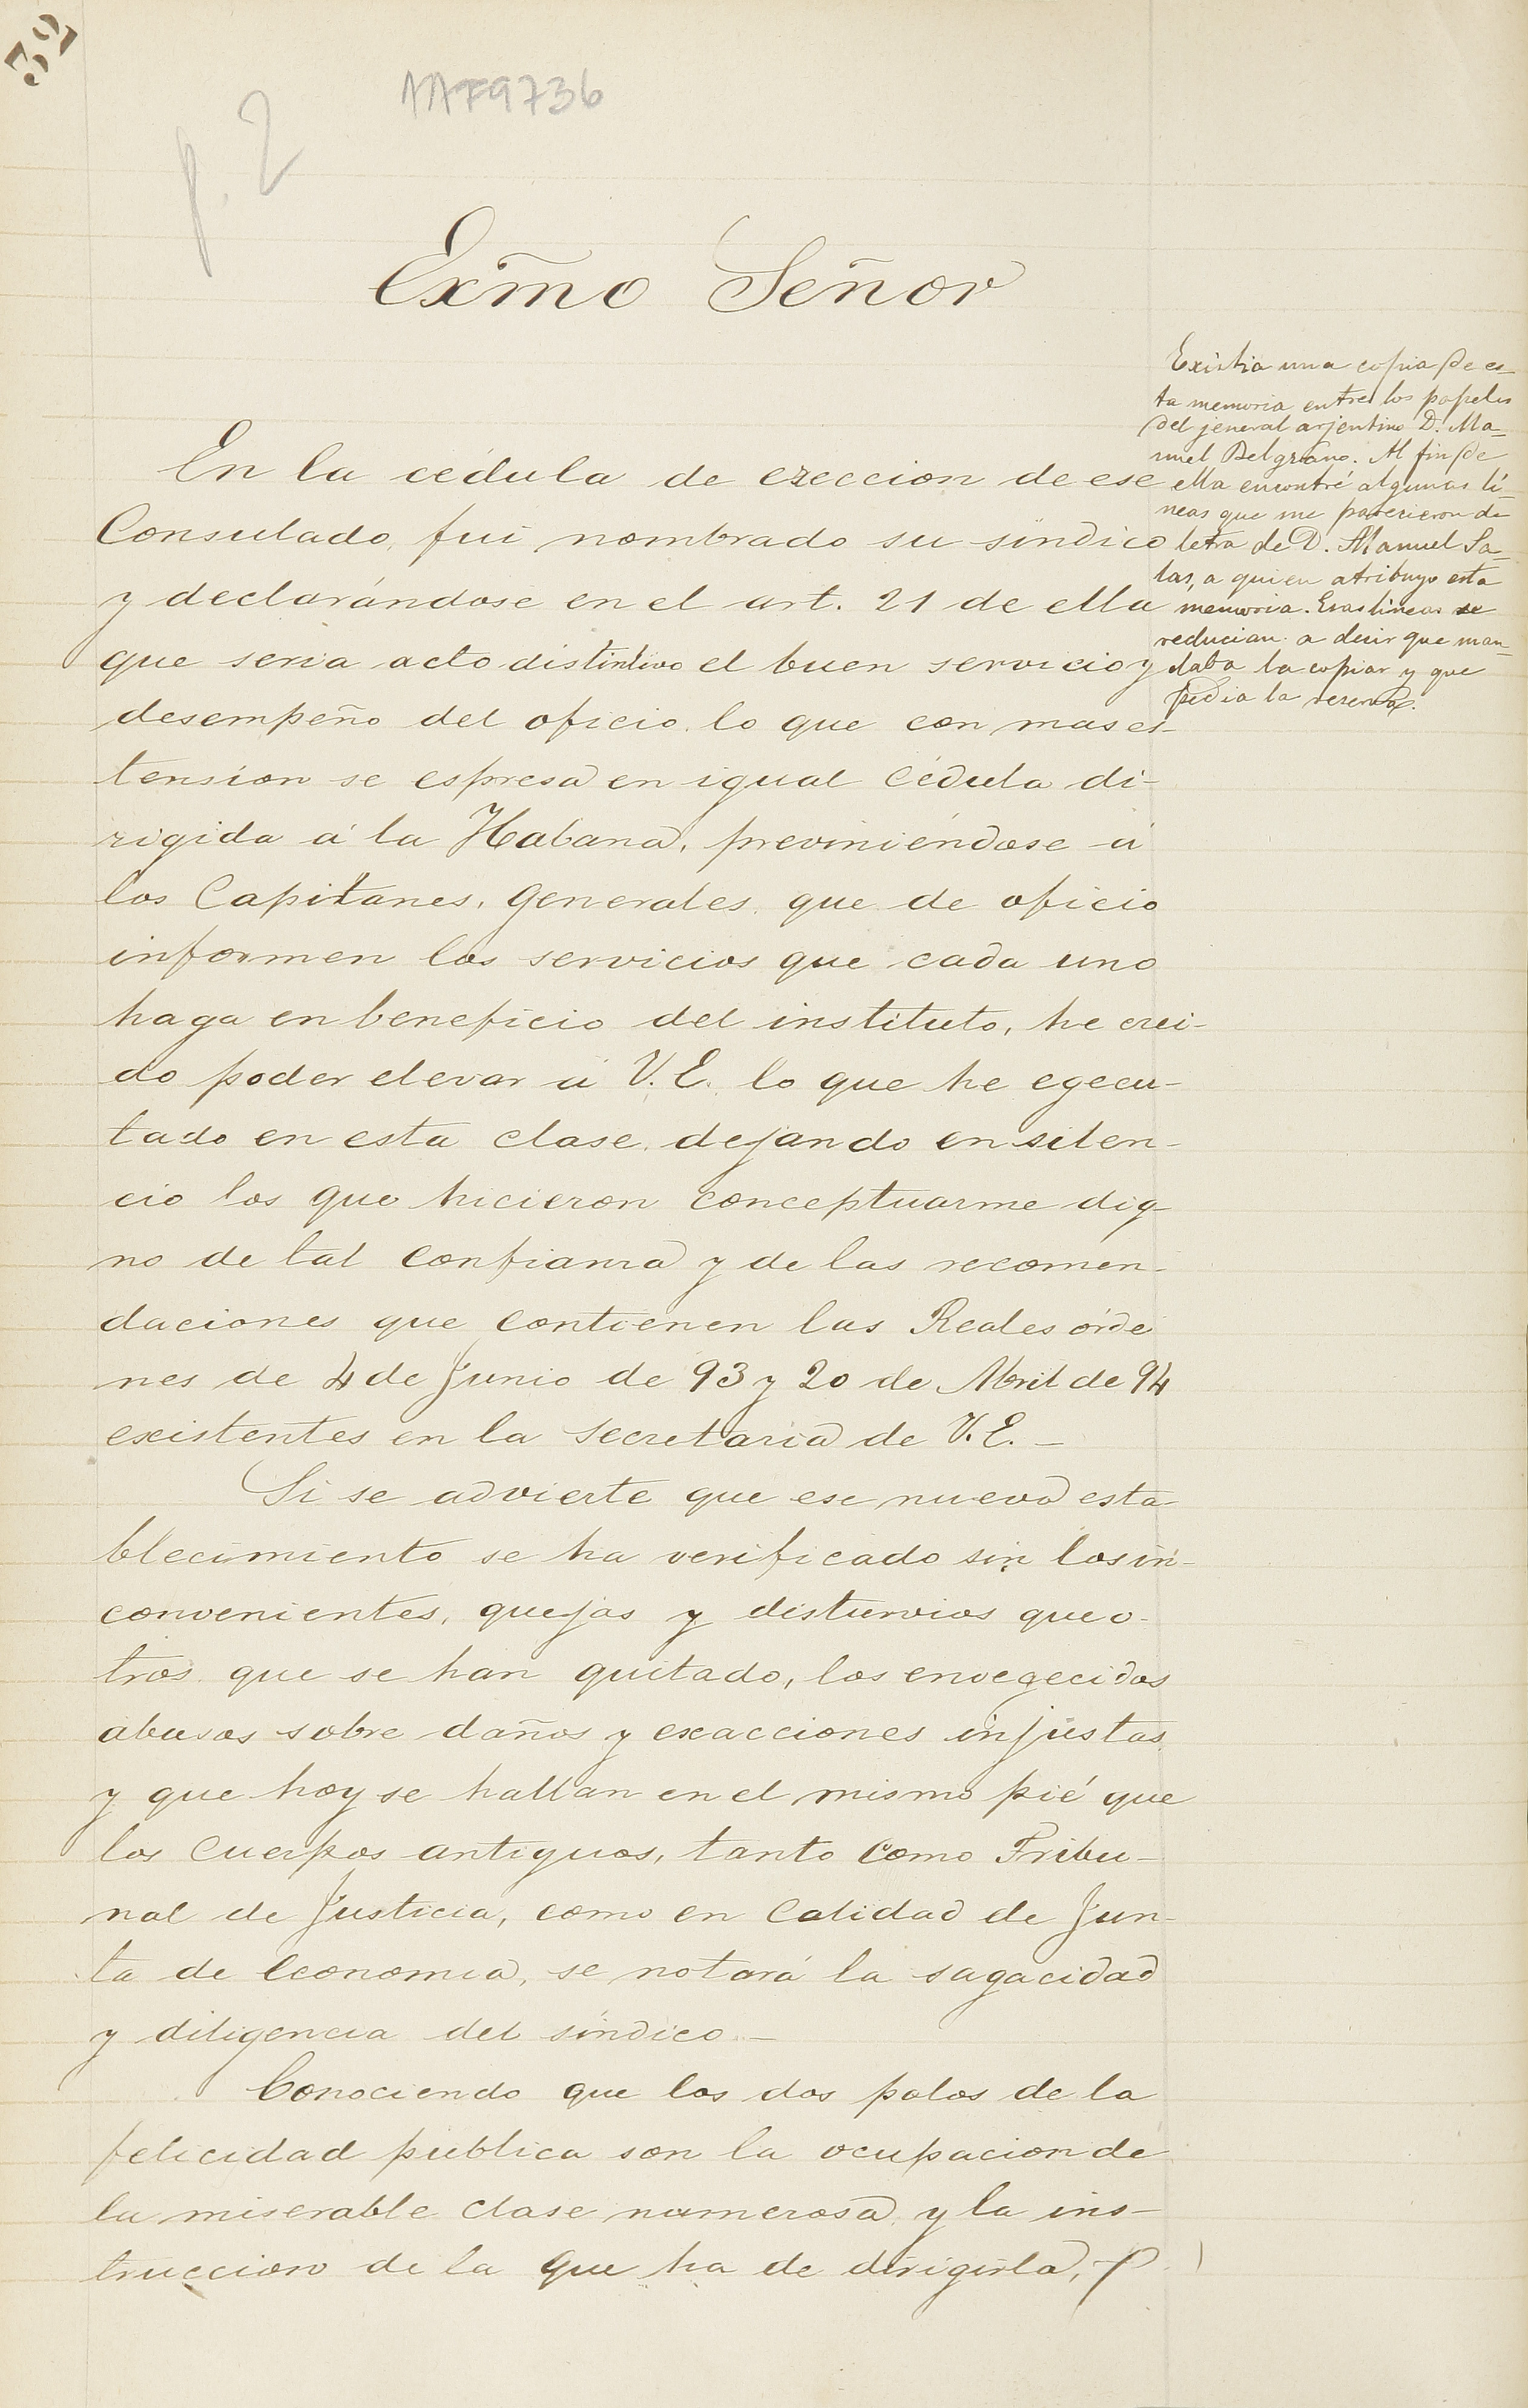 32
AAF9736
p. 2
Exmõ Señor
En la cédula de ereccion de ese
Consulado, fuí nombrado su síndico
y declarándose en el art. 21 de ella
que seria acto distintivo el buen servicio y
desempeño del oficio, lo que con mas es-
tension se espresa en igual Cédula di-
rigida á la Habana, previniéndose á
los Capitanes, Generales, que de oficio
informen los servicios que cada uno
haga en beneficio del instituto, he crei-
do poder elevar á V. E. lo que he egecu-
tado en esta clase, dejando en silen-
cio los que hicieron conceptuarme dig-
no de tal confianza y de las recomen-
daciones que contienen las Reales órde
nes de 4 de Junio de 93 y 20 de Abril de 94
existentes en la secretaria de V. E. —
Si se advierte que ese nuevo esta-
blecimiento se ha verificado sin los in-
convenientes, quejas y disturvios que o-
tros, que se han quitado, los envegecidos
abusos sobre daños y exacciones injustas
y que hoy se hallan en el mismo pié que
los Cuerpos antiguos, tanto como Tribu-
nal de Justicia, como en Calidad de Jun-
ta de Economia, se notará la sagacidad
y diligencia del síndico. —
Conociendo que los dos polos de la
felicidad publica son la ocupacion de
la miserable clase numerosa, y la ins-
truccion de la que ha de dirigirla,
Existia una copia de es-
ta memoria entre los papeles
del jeneral arjentino D. Ma-
nuel Belgrano. Al fin de
ella encontré algunas lí-
neas que me parecieron de
letra de D. Manuel Sa-
las, a quien atribuyo esta
memoria. Esas líneas se
reducian a decir que man-
daba la copiar y que
pedia la reserva.